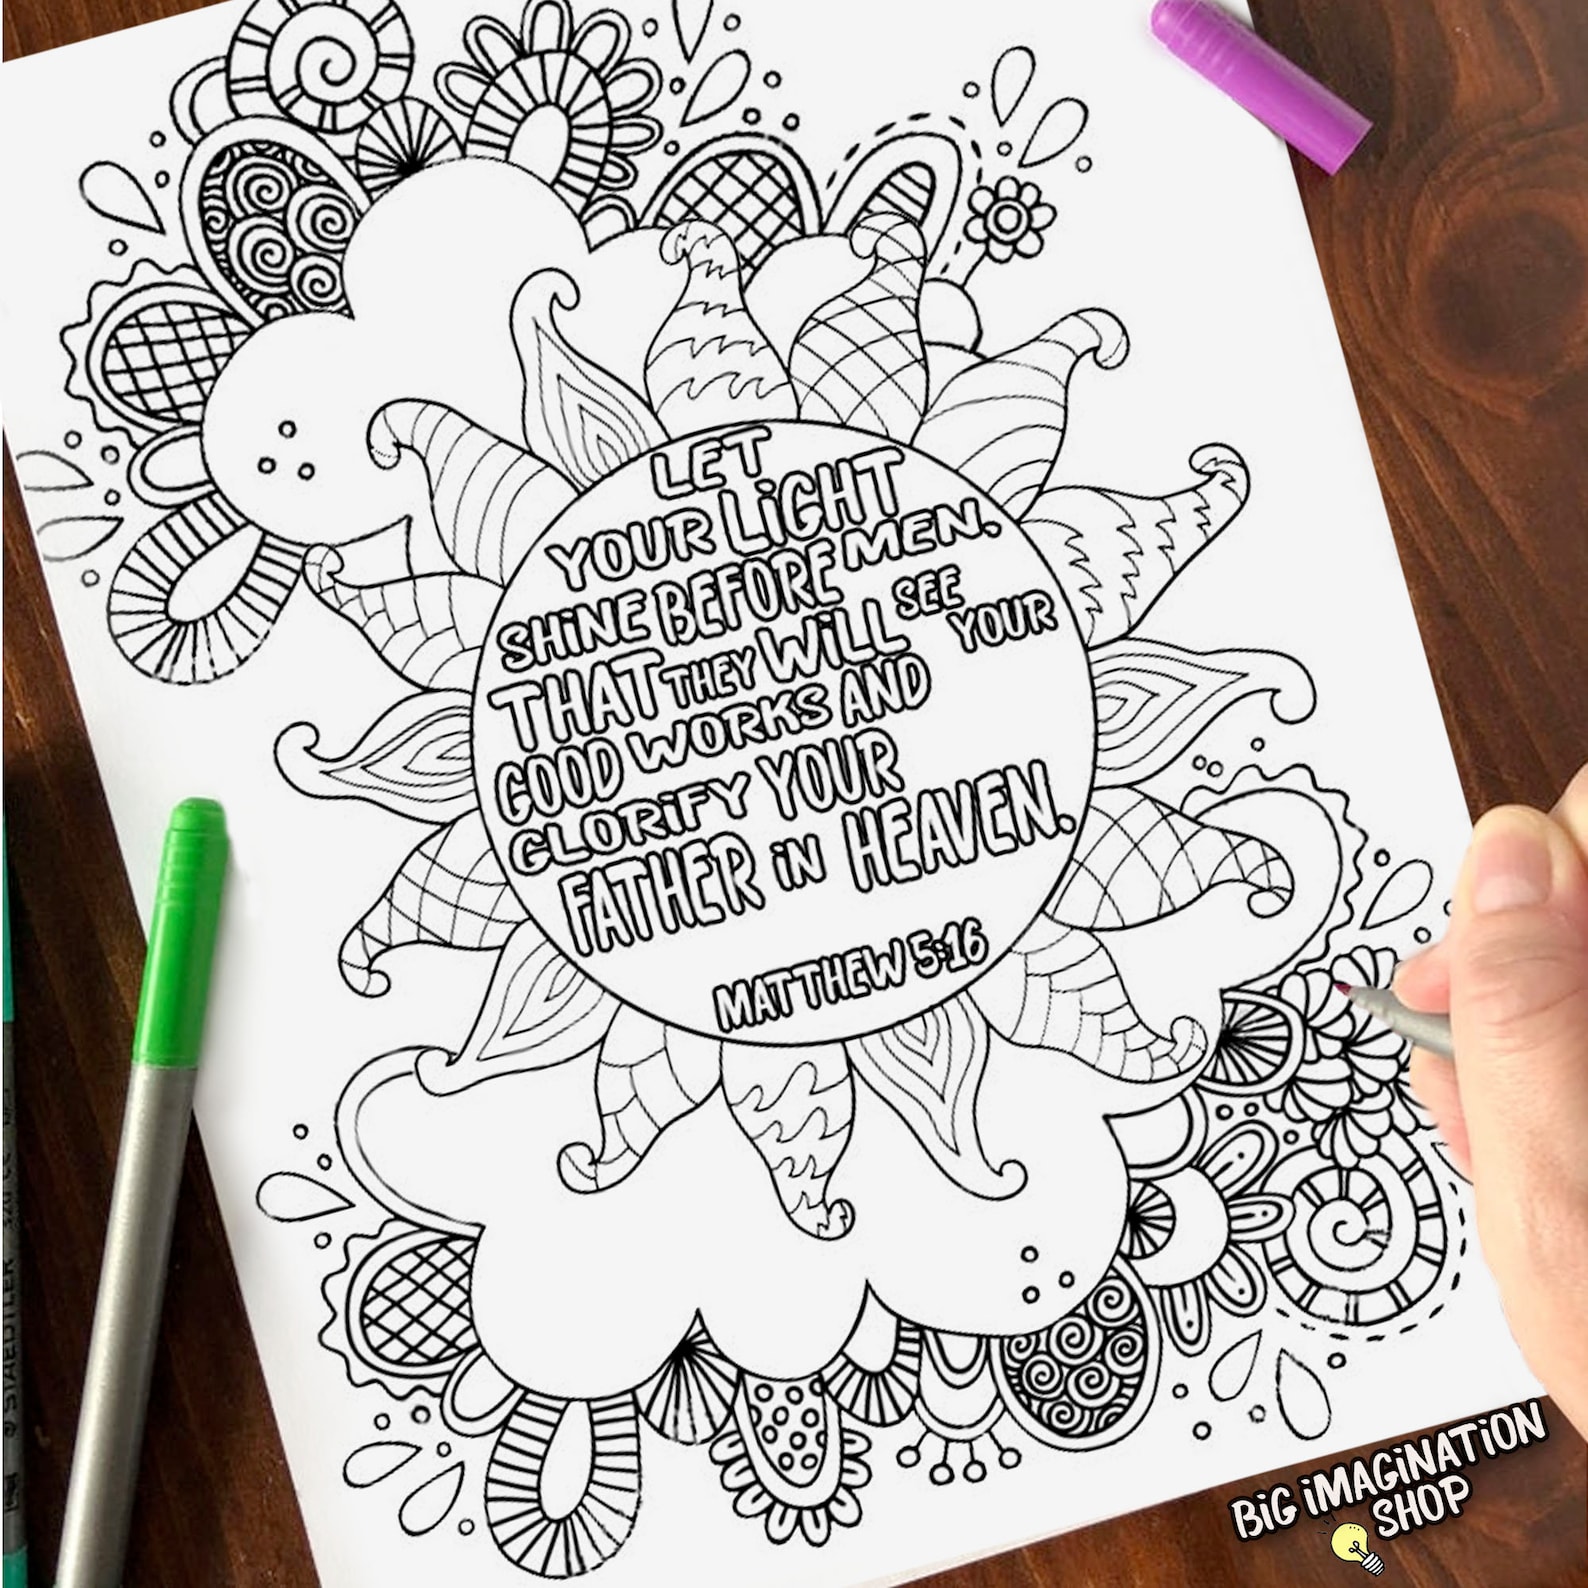 LET
YOUR LiGHT
SHiNE BEFORE MEN,
THAT THEY WiLL SEE YOUR
GOOD WORKS AND
GLORiFY YOUR
FATHER iN HEAVEN.
MATTHEW 5:16
STAEDTLER
BiG iMAGiNATiON
SHOP